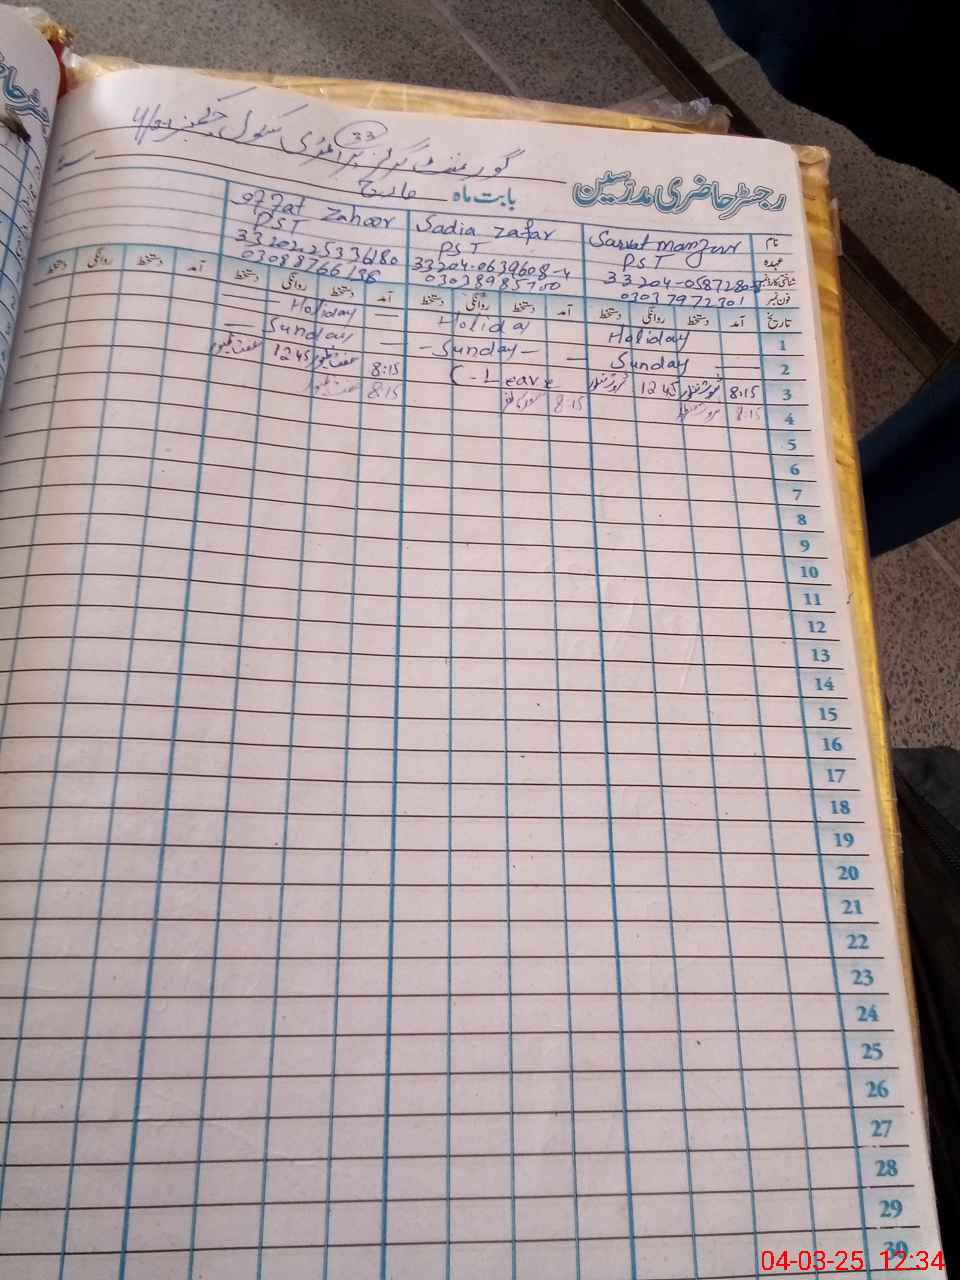 33
گورنمنٹ گرلز پرائمری سکول
رجسٹر حاضری مدرسین
بابت ماہ مارچ
نام Sarwat manzoor Sadia Zafar Zahoor
عہدہ PST PST PST
شناختی کارڈ نمبر 33204-0639608-4
فون نمبر 03037972301
تاریخ آمد دستخط روانگی دستخط آمد دستخط روانگی دستخط آمد دستخط روانگی دستخط آمد دستخط روانگی دستخط
1 Holiday Holiday Holiday
2 Sunday - Sunday - Sunday
3 8:15 1245 C-Leave 8:15 1245
4 8:15 8:15 8:15
5
6
7
8
9
10
11
12
13
14
15
16
17
18
19
20
21
22
23
24
25
26
27
28
29
30
04-03-25 12:34